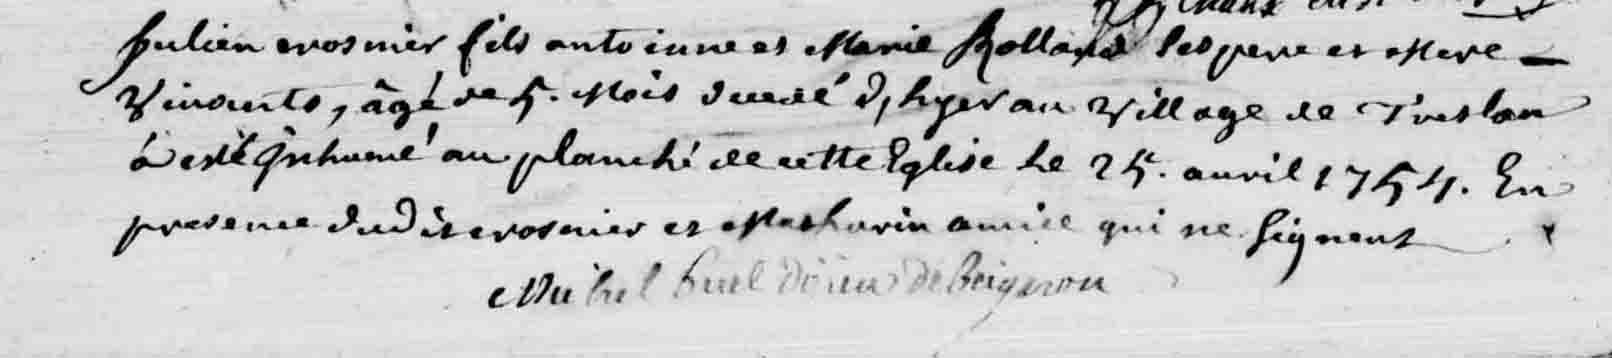 Julien crosnier fils antoinne et Marie Rolland ses pere et Mere
Vivants, âgé de 5. Mois decedé d,hyer au Village de Treslan
à esté Inhumé au planché de cette Eglise le 25. avril 1754. En
presence dudit crosnier et Mathurin amice qui ne signent
Michel